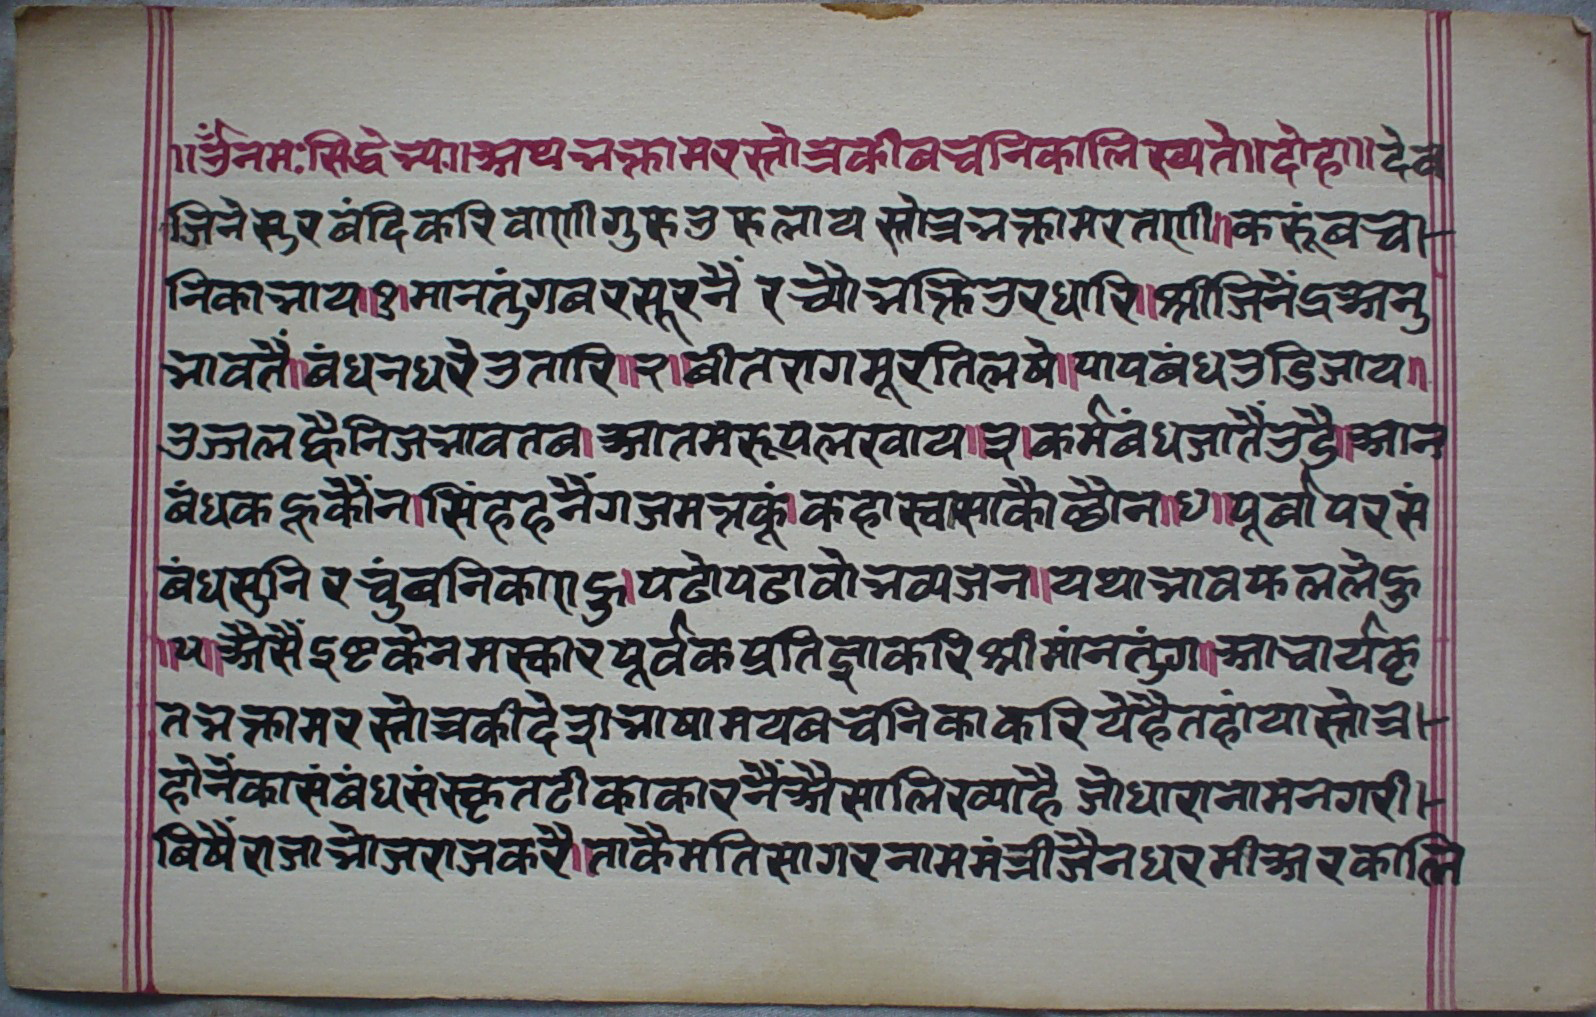 ॥ ॐ नमः सिद्धेभ्यः॥ अथ भक्तामरस्तोत्रकी बचनिका लिख्यते॥ दोहा॥ देव
जिनेसुर बंदिकरि वाणी गुरु उर लाय स्तोत्र भक्तामर तणी॥ करूं बच
निका भाय॥१॥ मानतुंग बर सूरनैं रच्यौ भक्ति उर धारि॥ श्री जिनैंद्र अनु
भावतैं॥ बंधन धरे उतारि॥२॥ बीतराग मूरति लषे॥ पाप बंध उडि जाय॥
उज्जल ह्वै निज भाव तब। आतम रूप लखाय॥३। कर्म बंध जातैं उदै। आन
बंध कहू कौंन। सिंह हनैं गज मत्तकूं। कहा स्वासाकौ छौन॥४॥ पूर्बापर सं
बंध सुनि रचुं बनिका एहु। पढो पढावो भव्यजन॥ यथा भाव फल लेहु
॥५॥ अैसैं इष्टके नमस्कार पूर्वक प्रतिज्ञा करि श्री मांनतुंग॥ आचार्य कृ
त भक्तामर स्तोत्रकी देशभाषामय बचनिका करिये है तहां या स्तोत्र
होनेंका संबंध संस्कृत टीकाकारनैं अैसा लिख्या है जो धारा नाम नगरी
बिषैं राजा भोज राज करै॥ ताकै मतिसागर नाम मंत्री जैनधरमी अर कालि